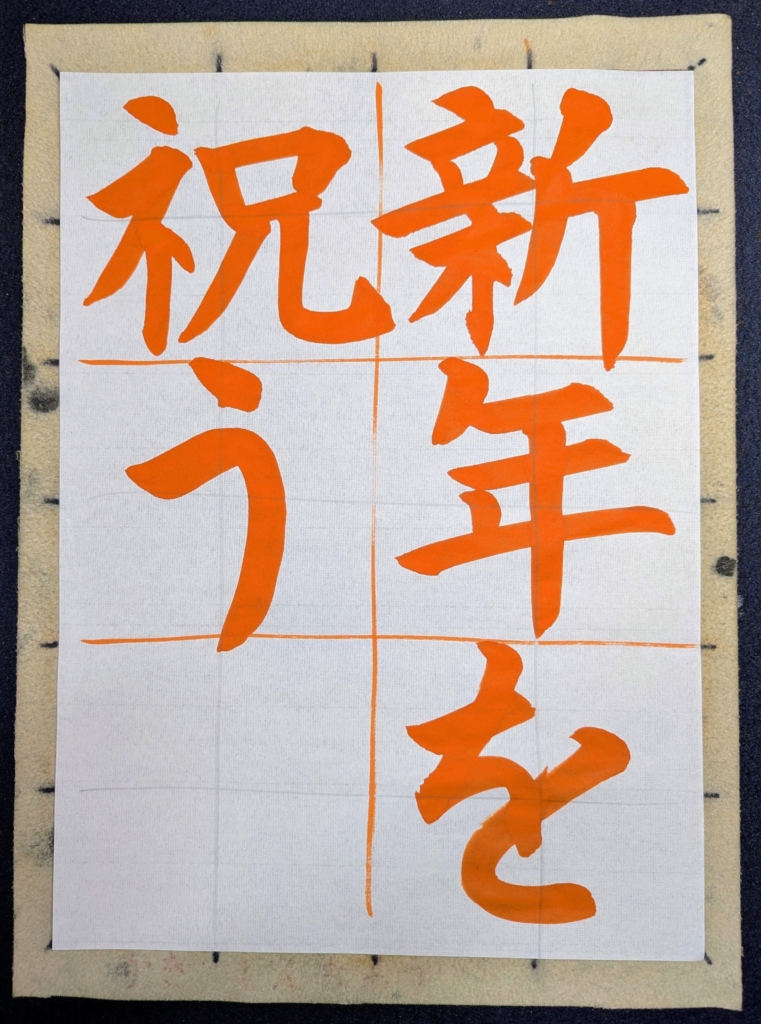 新年を
祝う